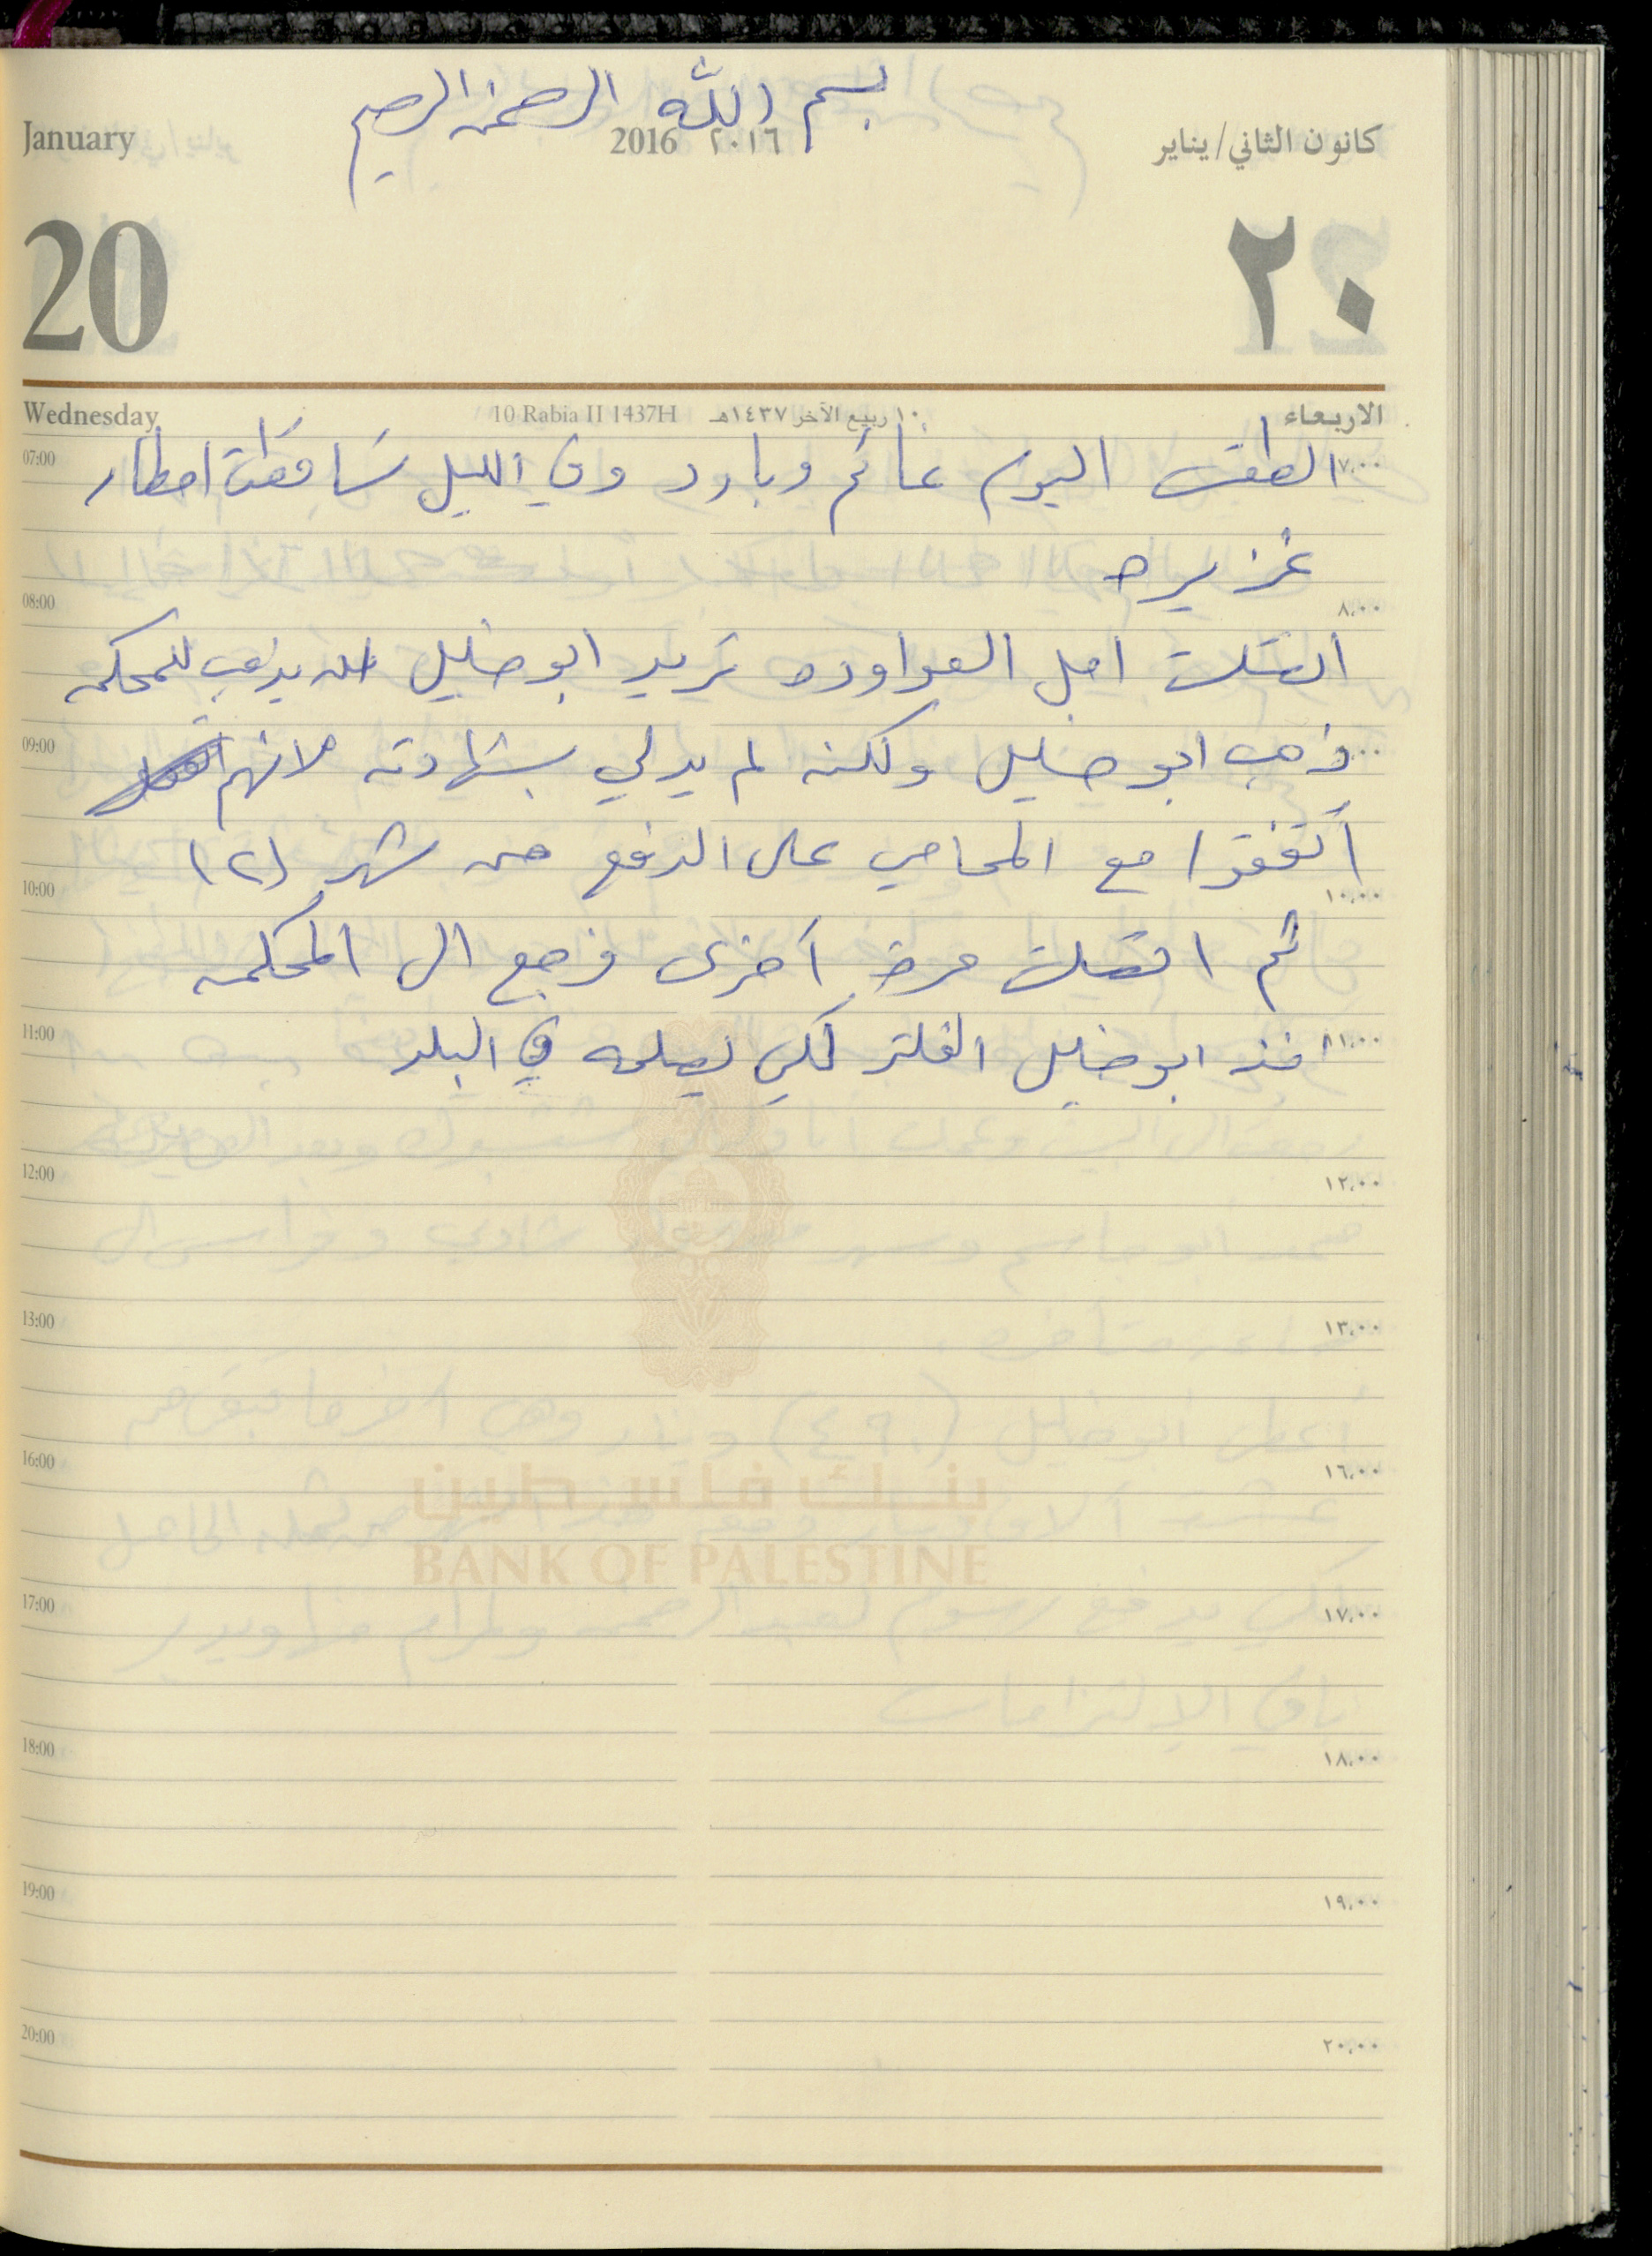 بسم الله الرحمن الرحيم
January 2016 ٢٠١٦ كانون الثاني/يناير
20 ٢٠
Wednesday 10 Rabia II 1437H ١٠ ربيع الآخر ١٤٣٧هـ الاربعاء
07:00 ٧,٠٠
الطقس اليوم غائم وبارد وفي الليل تساقطت امطار
غزيره
08:00 ٨,٠٠
اتصلت امل العواوده تريد ابو خليل ان يذهب للمحكمه
09:00
ذهب ابو خليل ولكنه لم يدلي بشهادته لانهم
أتفقوا مع المحامي على الدفع من شهر (٢)
10:00 ١٠,٠٠
ثم اتصلت مرة أخرى فرجع الى المحكمه
11:00 ١١,٠٠
اخذ ابو خليل الفلتر لكي يصلحه في البلد
12:00 ١٢,٠٠
13:00 ١٣,٠٠
16:00 ١٦,٠٠
بنك فلسطين
BANK OF PALESTINE
17:00 ١٧,٠٠
18:00 ١٨,٠٠
19:00 ١٩,٠٠
20:00 ٢٠,٠٠